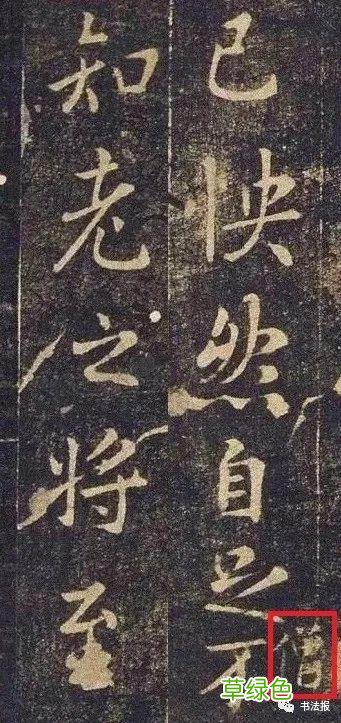 已怏然自足不
僧
知老之将至
草绿色
书法报